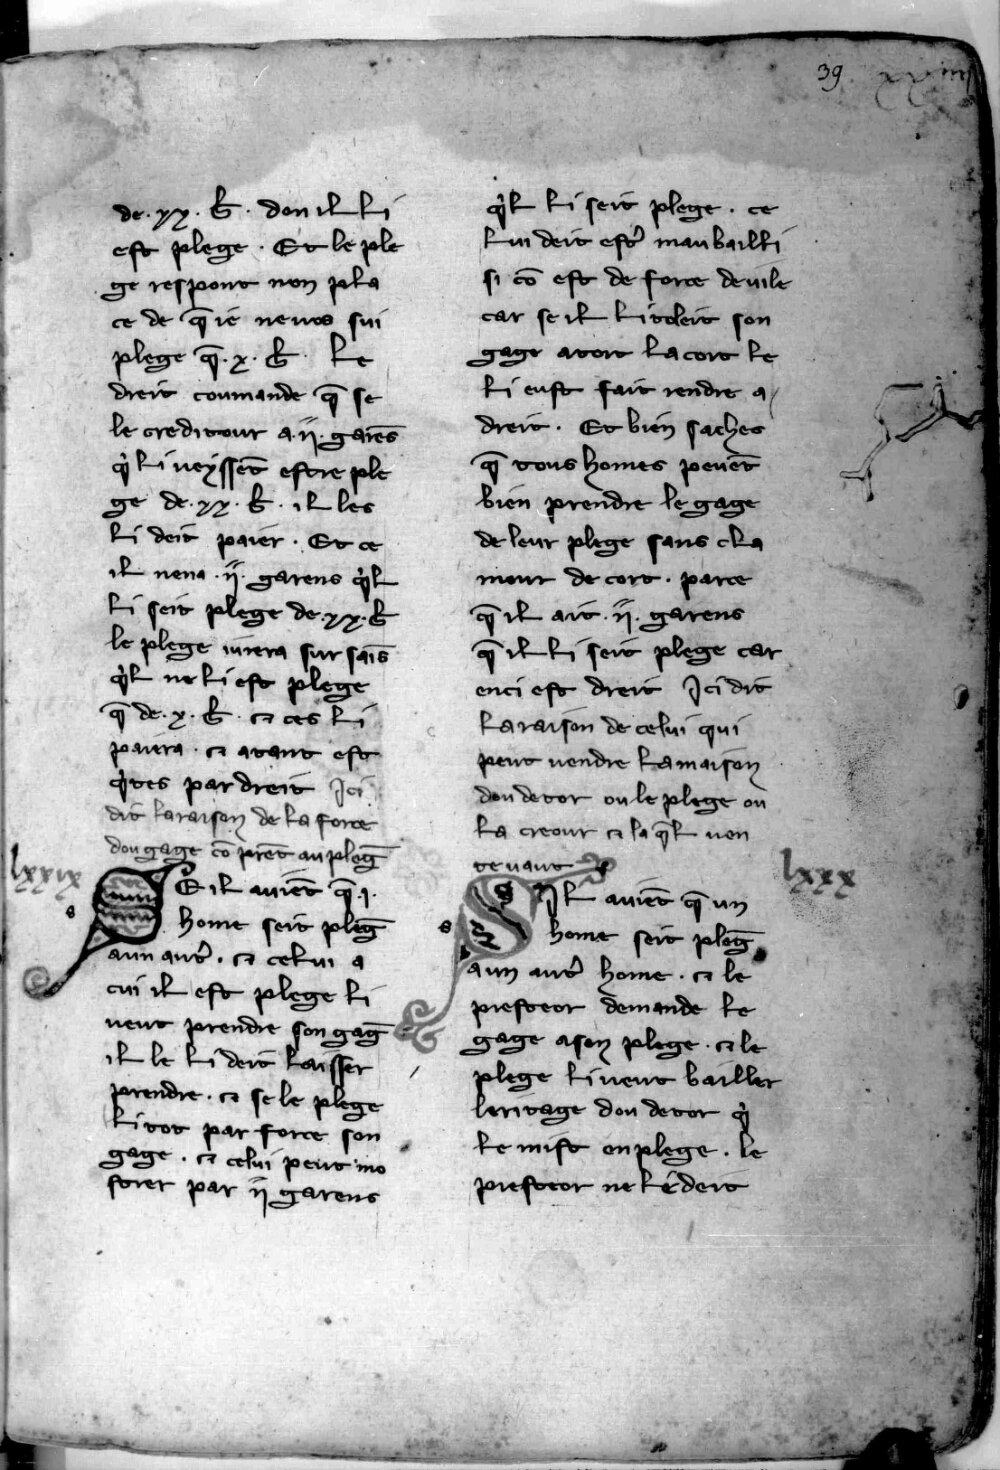 39 xxxiiij
de .xx. ƀ. don il li
est plege . Et le ple
ge respont non pla
ce de q̄ ie ne uos sui
plege q̄ .x. ƀ. le
dreit coumande q̄ se
le creditour a .ii. garēs
q̓ li ueyssēt estre ple
ge de .xx. ƀ. il les
li deit paier . Et ce
il nena .ii. garens q̓l
li seit plege de .xx. ƀ
le plege iurera sur saīs
q̓l ne li est plege
q̄ de .x. ƀ. ⁊ ces li
paiera . ⁊ atant est
q̓tes par dreit Ici
dit la raison de la force
dou gage cō prēt au pleḡ
lxxix
s
SE il auiēt q̄ .i.
home seit pleḡ
aun aut̓ . ⁊ celui a
cui il est plege li
ueut prendre son gaḡ
il le li deit laisser
prendre . ⁊ se le plege
li tot par force son
gage . ⁊ celui peut mo
strer par ii garens
q̓l li seit plege . ce
lui deit est̓ mau bailli
si cō est de force de uile
car se il li toleit son
gage a tort la cort le
li eust fait rendre a
dreit . Et bien saches
q̄ tous homes peuēt
bien prendre le gage
de leur plege sans cla
mour de cort . parce
q̄ il ait .ii. garens
q̄ il li seit plege car
enci est dreit Ici dit
la raison de celui qui
peut uendre la maison
dou detor ou le plege ou
la creour ⁊ la q̄l uen
te uaut
lxxx
s
S Il auiēt q̄ un
home seit pleḡ
a un aut̓ home . ⁊ le
presteor demande le
gage a son plege . ⁊ le
plege li ueut bailler
leritage dou detor q̓
le mist en plege . le
presteor ne le deit